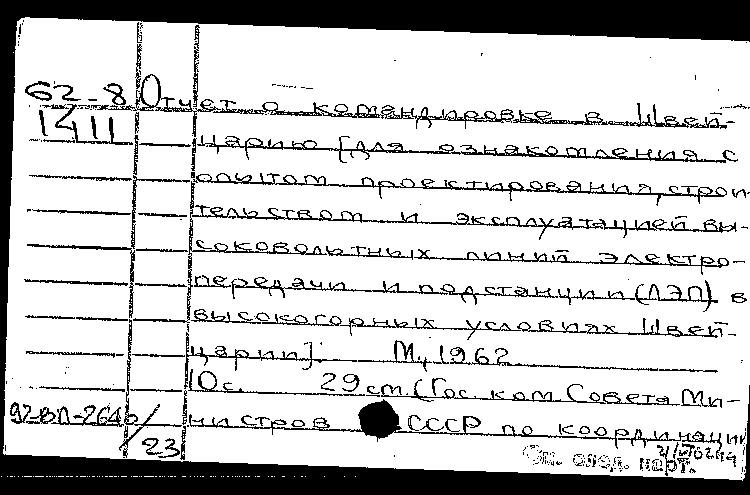 62-8 Отчет о командировке в Швей-
1411 царию [для ознакомления с
опытом проектирования, строи
тельством и эксплуатацией вы-
соковольтных линий электро-
передачи и подстанции (ЛЭП) в
высокогорных условиях Швей-
царии]. М., 1962
10с. 29 cm. (Гос. ком. Совета Ми-
92-ВП-2640/23 нистров СССР по координации
См. след. карт.